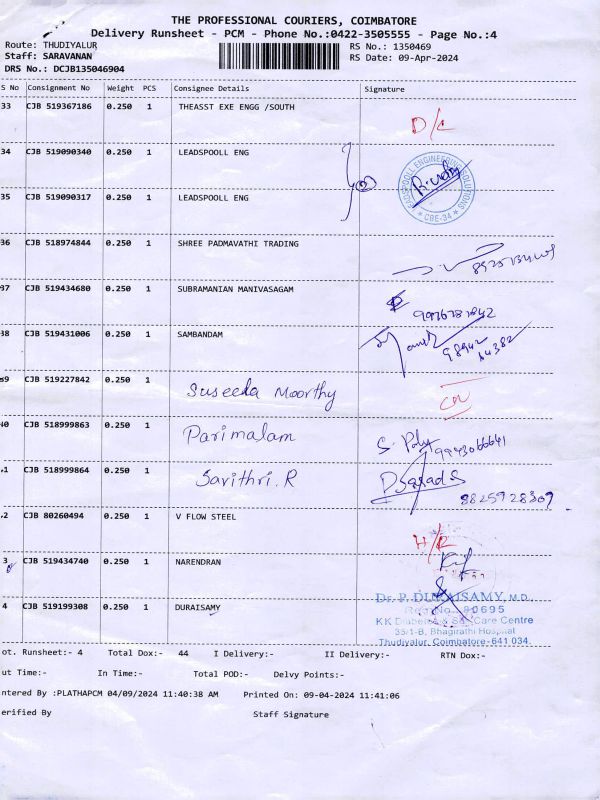 THE PROFESSIONAL COURIERS, COIMBATORE
Delivery Runsheet - PCM - Phone No.:0422-3505555 - Page No.:4
Route: THUDIYALUR
RS No.: 1350469
Staff: SARAVANAN
RS Date: 09-Apr-2024
DRS No.: DCJB135046904
S No Consignment No Weight PCS Consignee Details Signature
33 CJB 519367186 0.250 1 THEASST EXE ENGG /SOUTH
D/L
34 CJB 519090340 0.250 1 LEADSPOOLL ENG
2
LEADSPOOLL ENGINEERING SOLUTIONS
* CBE-34 *
35 CJB 519090317 0.250 1 LEADSPOOLL ENG
36 CJB 518974844 0.250 1 SHREE PADMAVATHI TRADING
37 CJB 519434680 0.250 1 SUBRAMANIAN MANIVASAGAM
38 CJB 519431006 0.250 1 SAMBANDAM
98942
64382
39 CJB 519227842 0.250 1 Suseela Moorthy
40 CJB 518999863 0.250 1 Parimalam
9943066641
41 CJB 518999864 0.250 1 Savithri.R
8825928309
.2 CJB 80260494 0.250 1 V FLOW STEEL
3 CJB 519434740 0.250 1 NARENDRAN
4 CJB 519199308 0.250 1 DURAISAMY
Dr. P. DURAISAMY, M.D.,
Reg No. 80695
KK Diabetes & Care Centre
35/1-B, Bhagirathi Hospital
Thudiyalur, Coimbatore-641 034.
ot. Runsheet:- 4 Total Dox:- 44 I Delivery:- II Delivery:- RTN Dox:-
ut Time:- In Time:- Total POD:- Delvy Points:-
ntered By :PLATHAPCM 04/09/2024 11:40:38 AM Printed On: 09-04-2024 11:41:06
erified By Staff Signature